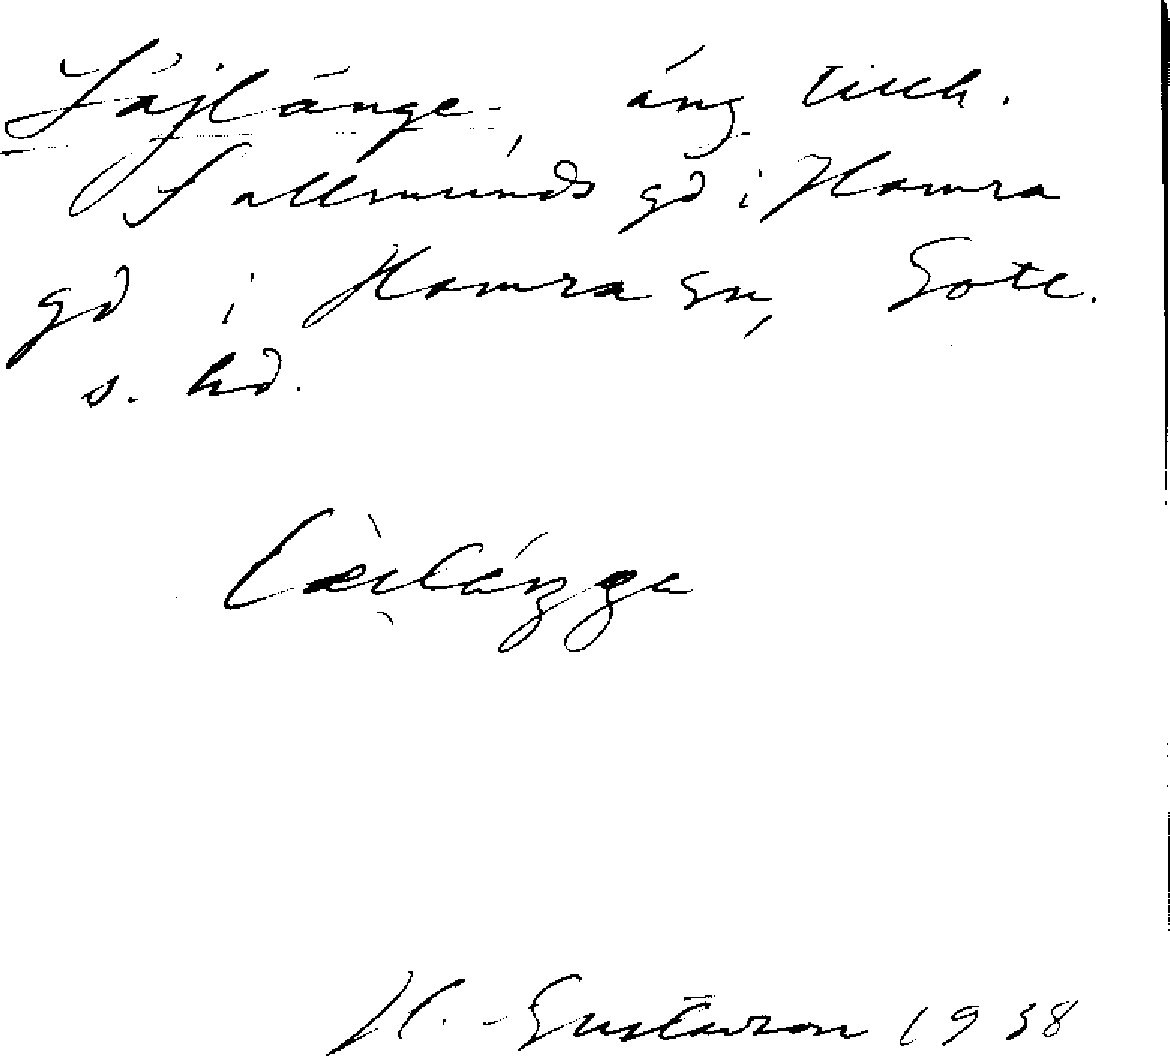 Läjlänge, äng tillh.
Sallmunds gd i Hamra
gd i Hamra sn, Gotl.
s. hd.
H. Gustavson 1938